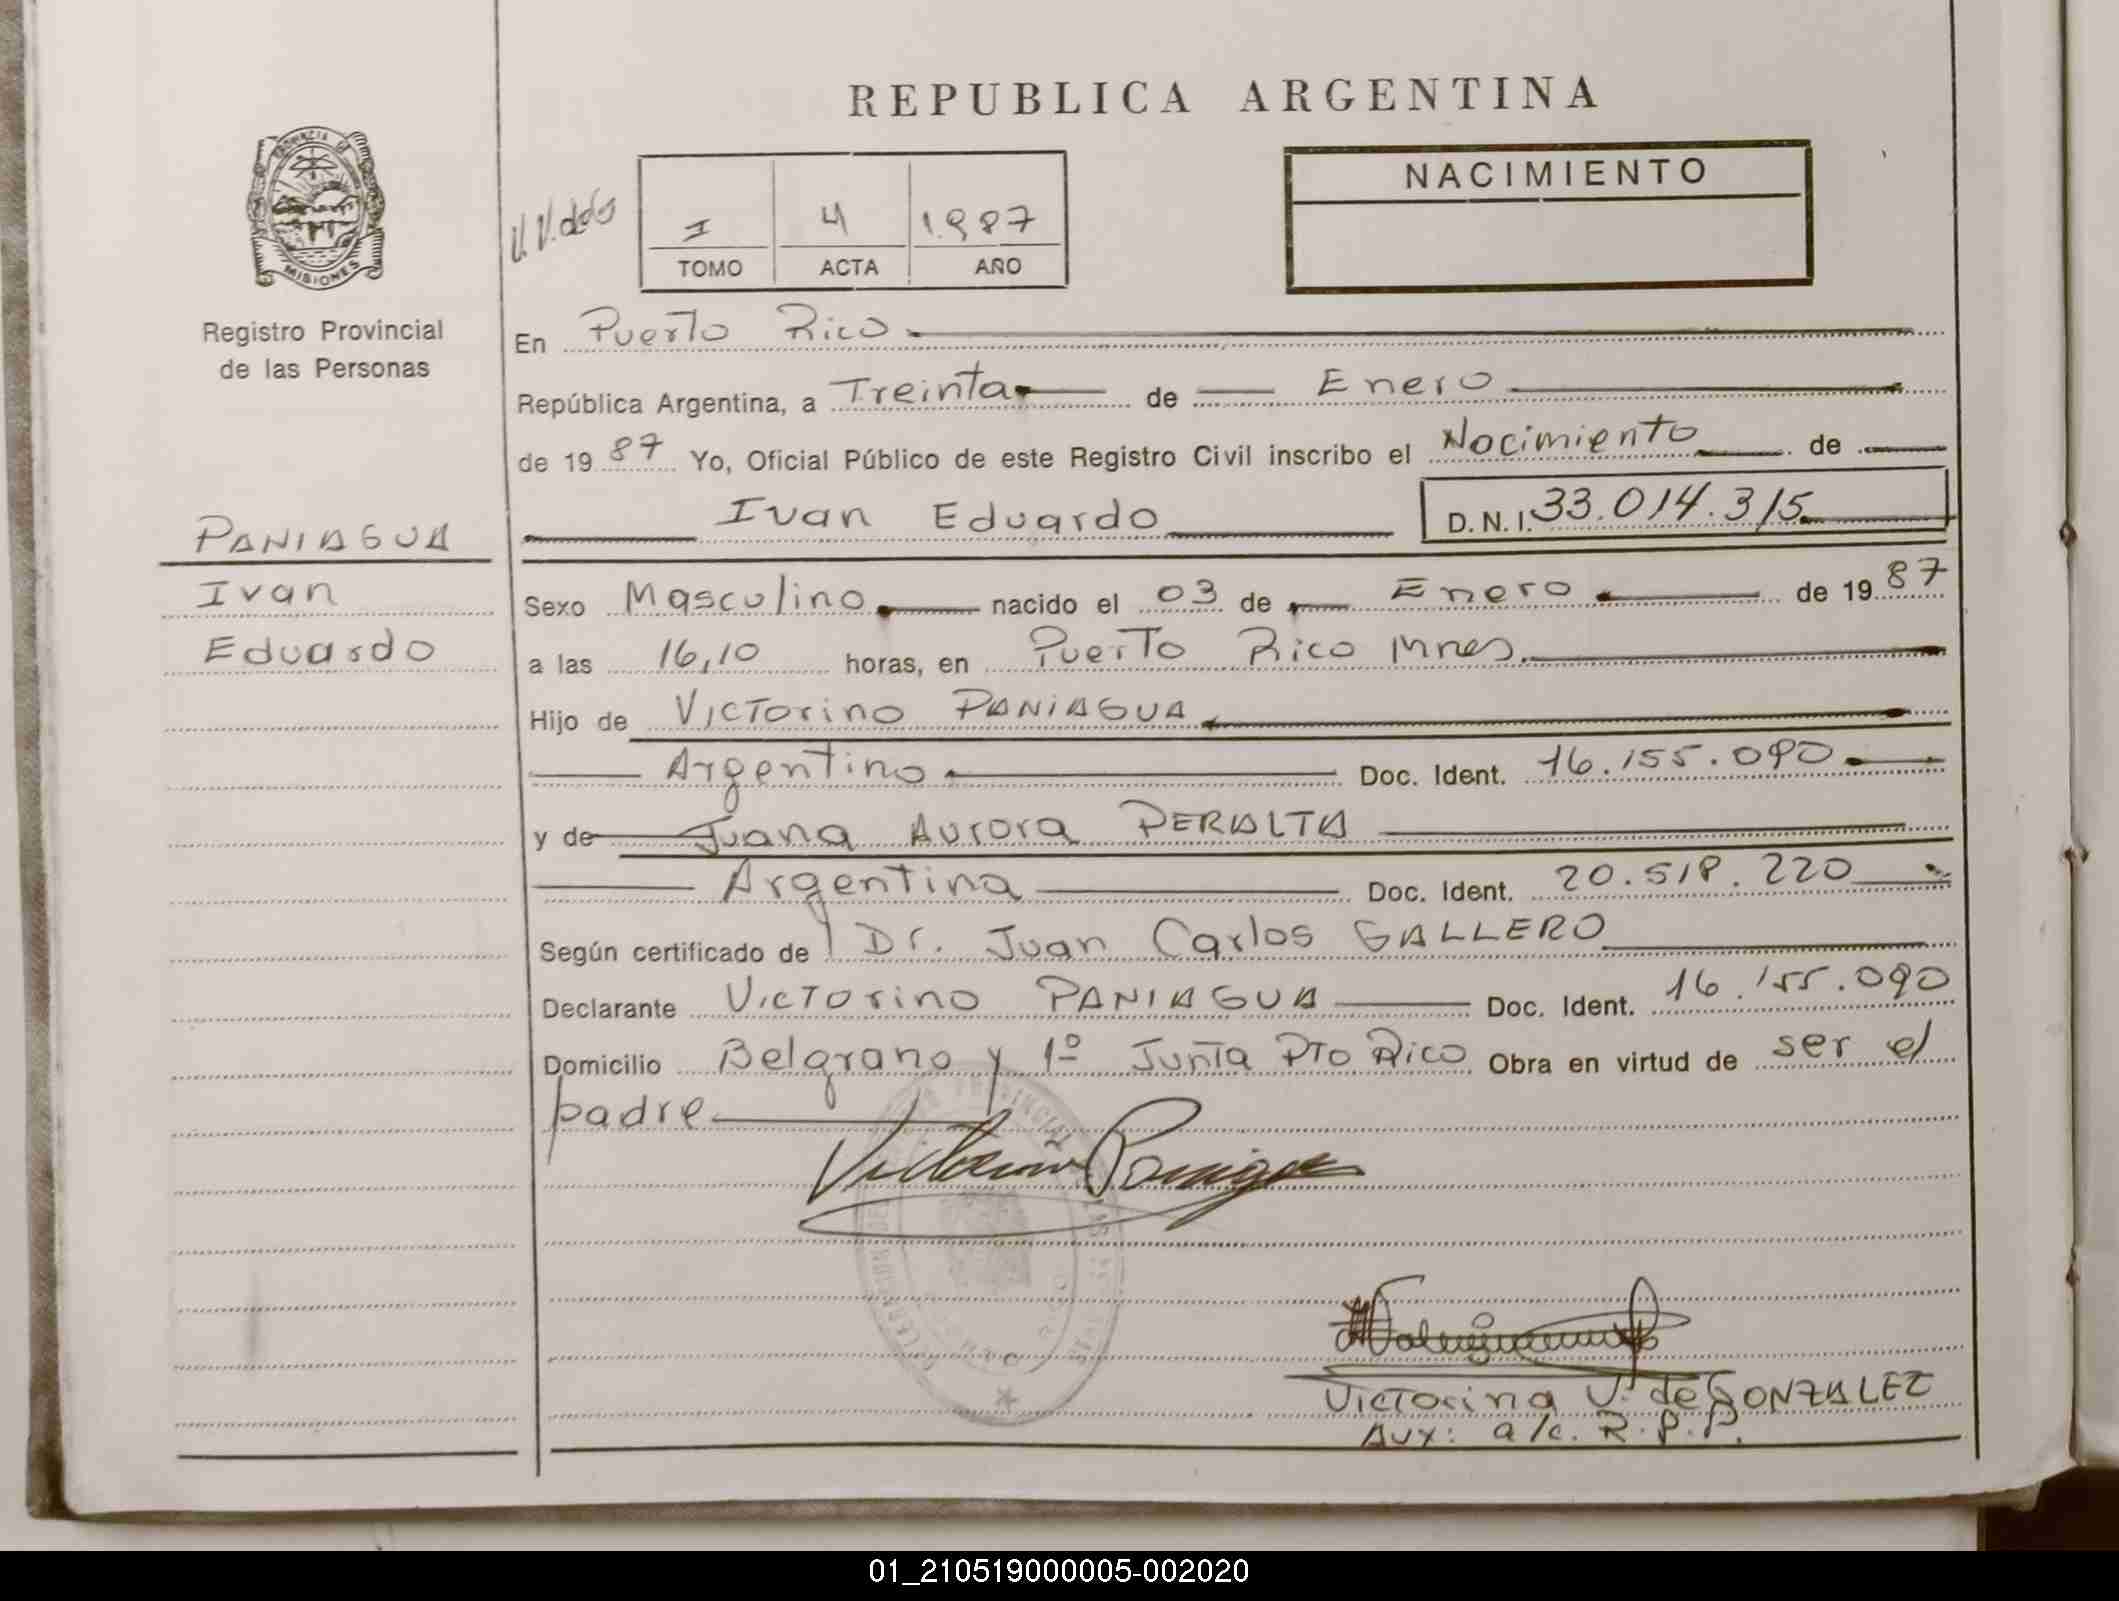 REPUBLICA ARGENTINA
PROVINCIA DE
MISIONES
Registro Provincial
de las Personas
I 4 1.987
TOMO ACTA AÑO
NACIMIENTO
En Puerto Rico
República Argentina, a Treinta de Enero
de 19 87 Yo, Oficial Público de este Registro Civil inscribo el Nacimiento de
Ivan Eduardo D. N. I. 33.014.315
PANIAGUA
Ivan
Eduardo
Sexo Masculino nacido el 03 de Enero de 19 87
a las 16,10 horas, en Puerto Rico Mnes.
Hijo de Victorino PANIAGUA
Argentino Doc. Ident. 16.155.090
y de Juana Aurora PERALTA
Argentina Doc. Ident. 20.518.220
Según certificado de Dr. Juan Carlos GALLERO
Declarante Victorino PANIAGUA Doc. Ident. 16.155.090
Domicilio Belgrano y 1º Junta Pto Rico Obra en virtud de ser el
padre
Victorino Paniagua
Victorina V. de GONZALEZ
Aux: a/c. R.P.P.
01_210519000005-002020